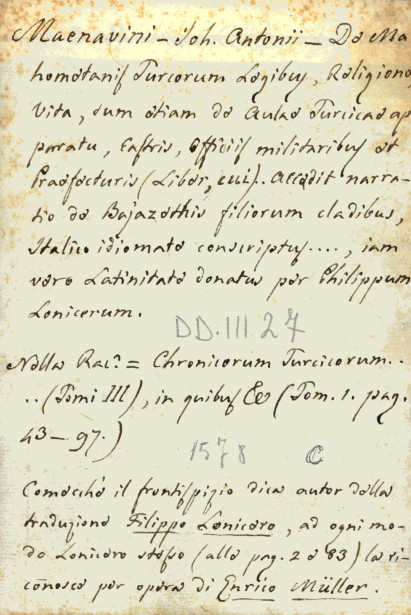 Maenavini - Joh. Antonii - De Ma
hometanis Turcorum Legibus, Religione,
vita, tum etiam de Aulae Turcicae ap
paratu, Castris, Officiis militaribus et
Praefecturis (Liber, cui). Accedit narra-
tio de Bajazethis filiorum cladibus,
Italico idiomate conscriptus...., iam
vero Latinitate donatus per Philippum
Lonicerum.
DD.III 27
Nella Rac.ª = Chronicorum Turcicorum..
..(Tomi III), in quibus &c (Tom. 1. pag.
43-97.)
1578 C
Comecchè il frontispizio dica autor della
traduzione Filippo Lonicero, ad ogni mo-
do Lonicero stesso (alle pag. 2 e 83) la ri-
conosce per opera di Enrico Müller.